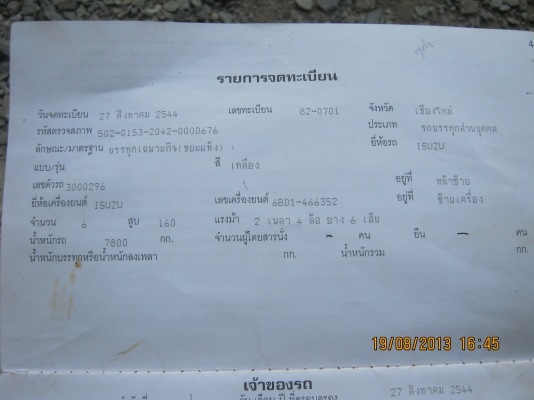 รายการจดทะเบียน
วันจดทะเบียน 27 สิงหาคม 2544 เลขทะเบียน 82-0701 จังหวัด เชียงใหม่
รหัสตรวจสภาพ 502-0153-2042-0000676 ประเภท รถบรรทุกส่วนบุคคล
ลักษณะ/มาตรฐาน บรรทุกเฉพาะกิจ(ขยะแห้ง) ยี่ห้อรถ ISUZU
แบบ/รุ่น สี เหลือง
เลขตัวรถ 3000296 อยู่ที่ หน้าซ้าย
ยี่ห้อเครื่องยนต์ ISUZU เลขเครื่องยนต์ 6BD1-466352 อยู่ที่ ซ้ายเครื่อง
จำนวน 6 สูบ 160 แรงม้า 2 เพลา 4 ล้อ ยาง 6 เส้น
น้ำหนักรถ 7800 กก. จำนวนผู้โดยสารนั่ง - คน ยืน - คน
น้ำหนักบรรทุกหรือน้ำหนักลงเพลา กก. น้ำหนักรวม กก.
19/08/2013 16:45
เจ้าของรถ
27 สิงหาคม 2544